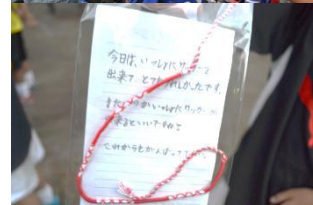 今日は、いっしょにサッカーを
出来て とてもうれしかったです。
またいつかいっしょにサッカーが
来るといいですね!
これからもがんばって